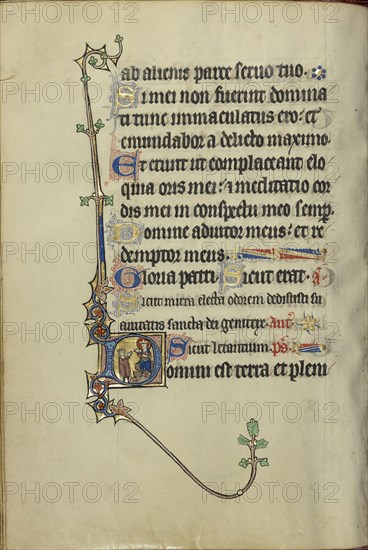 ab alienis parce seruo tuo.
Si mei non fuerint domina
ti tunc immaculatus ero: et
emundabor a delicto maximo.
Et erunt ut complaceant elo
quia oris mei: & meditatio cor
dis mei in conspectu meo semp.
Domine adiutor meus: et re
demptor meus.
Gloria patri. Sicut erat. a.
Sicut mirra electa odorem dedisti su
auitatis sancta dei genitrix. Ant.
Sicut letantium. ps.
Domini est terra et pleni
PHOTO 12